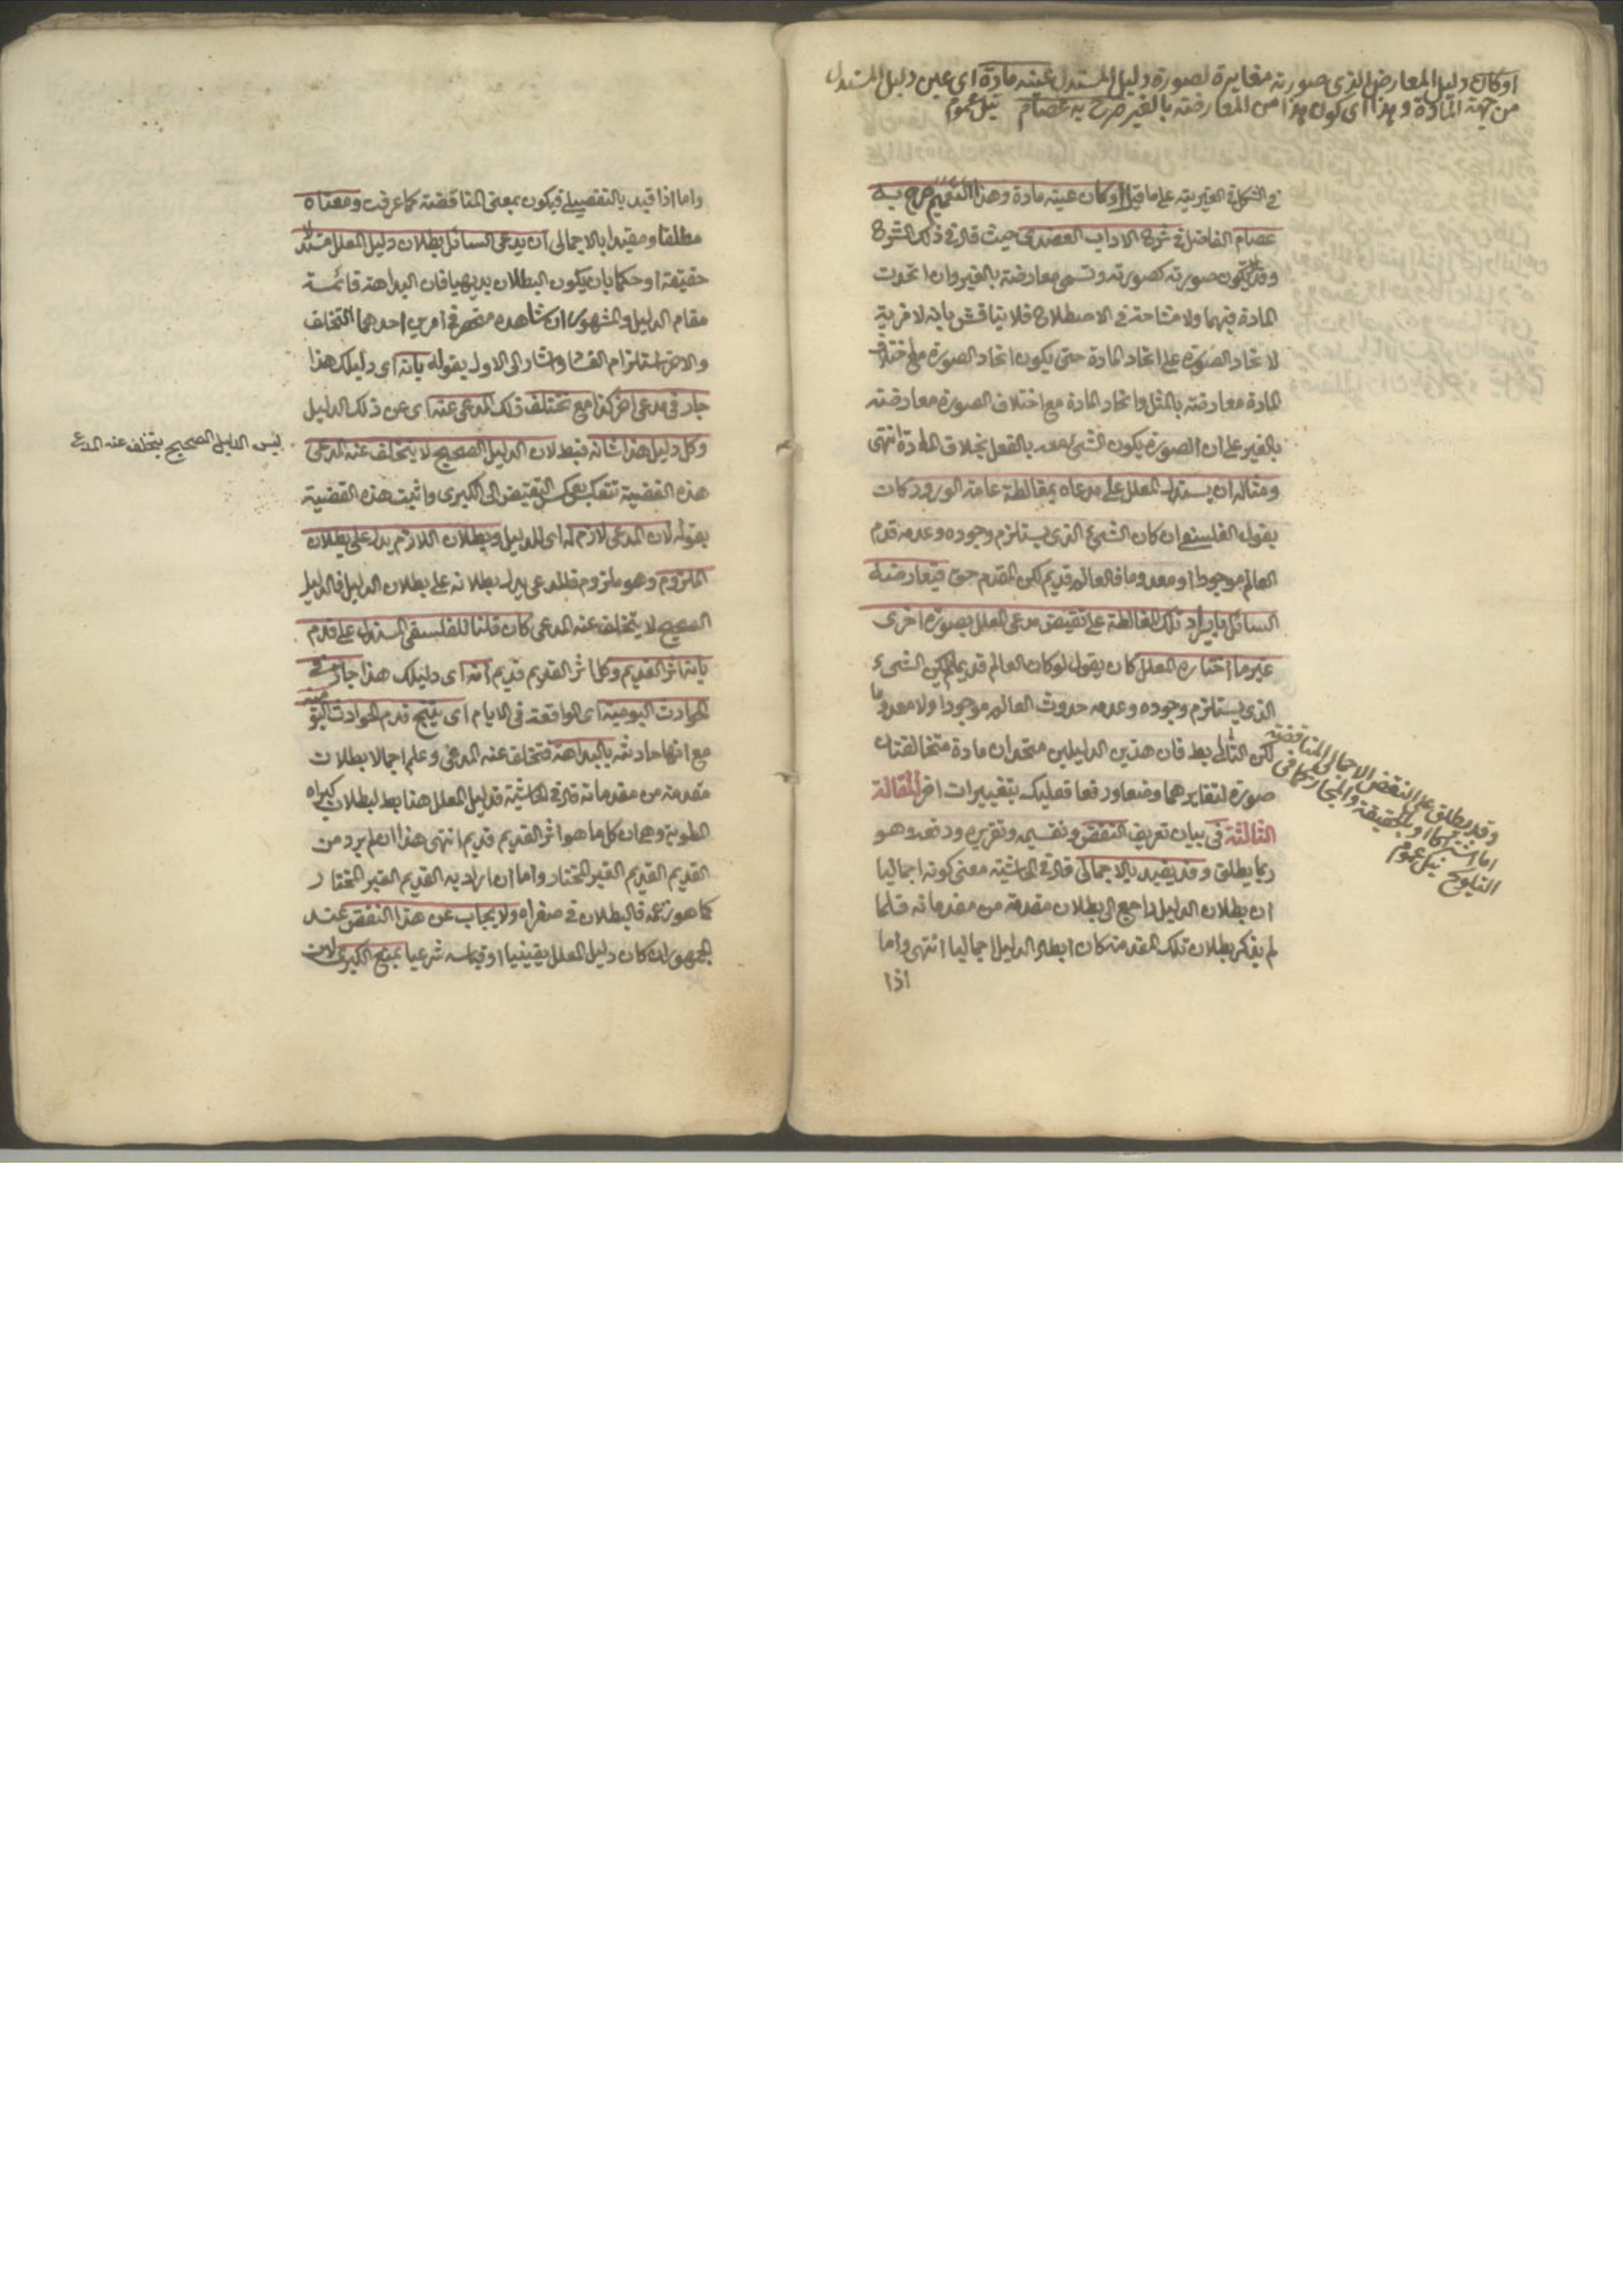 او كان دليل المعارض الذى صورته مغايرة لصورة دليل المستدل عينه مادة اى عين دليل المستدل
من جهة المادة وهذا اى كون هذا من المعارضة بالغير صرح به عصام
فى الشكل فى الغيرية على ما قيل او كان عينه مادة وهذا التعميم صرح به
عصام الفاضل فى شرح الاداب العضدى حيث قال فى ذلك الشرح
وقد لا يكون صورته كصورته وتسمى معارضة بالغير وان اتحدت
المادة فيهما ولا مشاحة فى الاصطلاح فلا يناقش بانه لا مزية
لاتحاد الصورة على اتحاد المادة حتى يكون اتحاد الصورة مع اختلاف
المادة معارضة بالمثل واتحاد المادة مع اختلاف الصورة معارضة
بالغير على ان الصورة يكون الشىء معه بالفعل بخلاف المادة انتهى
ومثاله ان يستدل المعلل على مدعاه بمغالطة عامة الورود كان
يقول الفلسفى ان كان الشىء الذى يستلزم وجوده وعدمه قدم
العالم موجودا او معدوما فالعالم قديم لكن المقدم حق فيعارضه
السائل بايراد تلك المغالطة على نقيض مدعى المعلل بصورة اخرى
غير ما اختاره المعلل كان يقول لو كان العالم قديما لم يكن الشىء
الذى يستلزم وجوده وعدمه حدوث العالم موجودا ولا معدوما
لكن التالى بط فان هذين الدليلين متحدان مادة متخالفتان
صورة لتغايرهما وضعا ورفعا فعليك بتغييرات اخر المقالة
الثالثة فى بيان تعريف النقض وتقسيمه وتقريره ودفعه وهو
ربما يطلق وقد يقيد بالاجمالى قال فى الحاشية معنى كونه اجماليا
ان بطلان الدليل راجع الى بطلان مقدمة من مقدماته فلما
لم يذكر بطلان تلك المقدمة كان ابطال الدليل اجماليا انتهى واما
اذا
وقد يطلق على النقض الاجمالى المناقضة
اما اشتراكا او بالحقيقة والمجاز كما فى
التلويح
واما اذا قيد بالتفصيلى فيكون بمعنى المناقضة كما عرفت ومعناه
مطلقا ومقيدا بالاجمالى ان يدعى السائل بطلان دليل المعلل مستدلا
حقيقة او حكما بان يكون البطلان بديهيا فان البداهة قائمة
مقام الدليل والمشهور ان شاهده منحصر فى امرين احدهما التخلف
والاخر استلزام الفساد واشار الى الاول بقوله بانه اى دليلك هذا
جار فى مدعى اخر كذا مع تخلف ذلك المدعى عنه اى عن ذلك الدليل
وكل دليل هذا شانه فبط لان الدليل الصحيح لا يتخلف عنه المدعى
هذه القضية تنعكس بعكس النقيض الى الكبرى واثبت هذه القضية
بقوله لان المدعى لازم له اى للدليل وبطلان اللازم يدل على بطلان
الملزوم وهو ملزوم فالمدعى يدل بطلانه على بطلان الدليل فالدليل
الصحيح لا يتخلف عنه المدعى كان قلنا للفلسفى المستدل على قدم
بانه اثر القديم وكل اثر القديم قديم انه اى دليلك هذا جار فى
الحوادث اليومية اى الواقعة فى الايام اى ينتج قدم الحوادث اليومية
مع انها حادثة بالبداهة فتخلف عنه المدعى وعلم اجمالا بطلان
مقدمة من مقدماته قال فى الحاشية فدليل المعلل هنا بط لبطلان كبراه
المطوية وهى ان كل ما هو اثر القديم قديم انتهى هذا ان لم يرد من
القديم القديم الغير المختار واما ان اراد به القديم الغير المختار
كما هو زعمه فالبطلان فى صغراه ولا يجاب عن هذا النقض عند
الجمهور ان كان دليل المعلل يقينيا او قياسه شرعيا بمنع الكبرى لان
ليس الدليل الصحيح يتخلف عنه المدعى